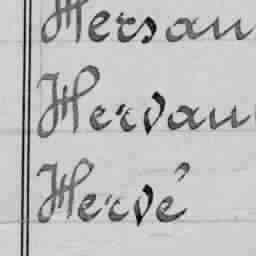 Hersan
Hervau
Hervé